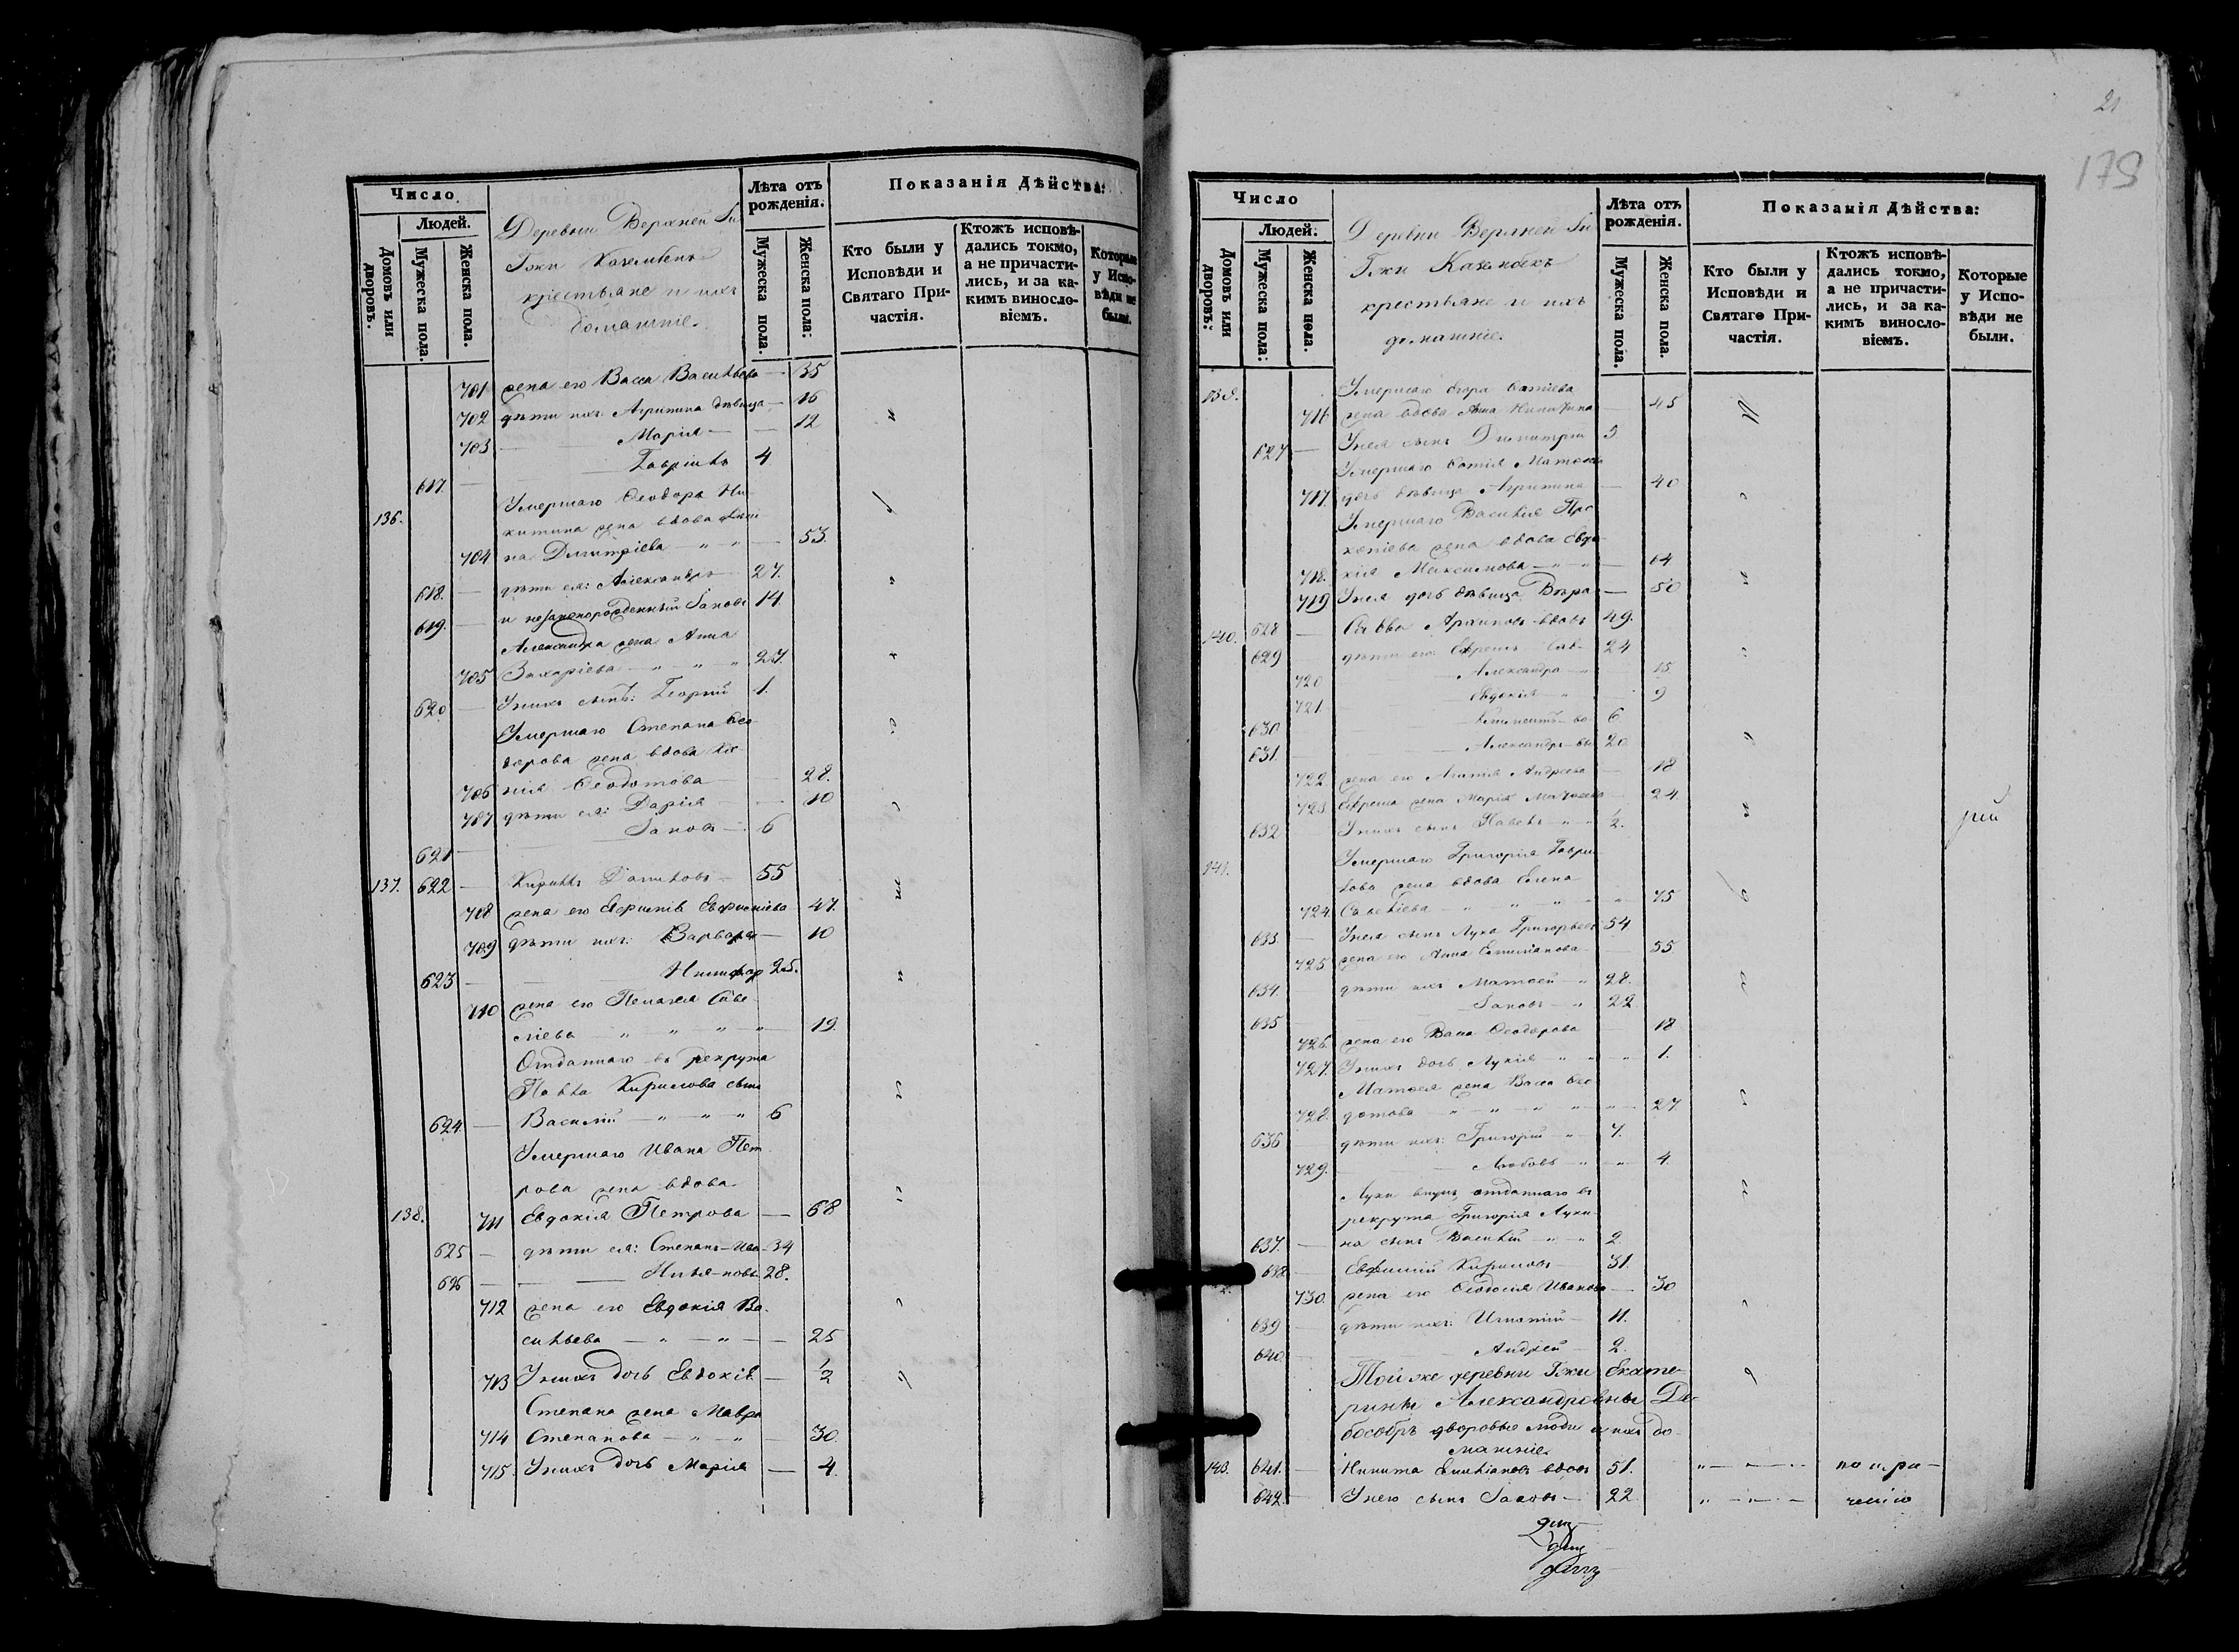 Число
Людей.
Домовъ или дворовъ.
Мужеска пола.
Женска пола.
Деревни Верхней
Гжи Казембекъ
крестьяне и ихъ
домашніе.
Лѣта отъ рожденія.
Мужеска пола.
Женска пола.
Показанія Дѣйства:
Кто были у Исповѣди и Святаго Причастія.
Ктожъ исповѣдались токмо, а не причастились, и за какимъ винословіемъ.
Которые у Исповѣди не были.
701 жена его Васса Васильева — 35
702 дѣти ихъ: Агрипина дѣвица — 16
703 — Марія — 12
617. — Гавріилъ 4
136. Умершаго Ѳеодора Ни-
китина жена вдова
704 на Димитріева — " — " — 53.
618. — дѣти ея: Александръ 27.
619. — и незаконорожденный Іаковъ 14.
Александра жена Анна
705 Захаріева — " — " — " 27.
620 — У нихъ сынъ: Георгій 1.
Умершаго Степана Ѳео-
дорова жена вдова
706 нія Ѳеодотова — 28.
707 дѣти ея: Дарія — 10
621 — Іаковъ — 6
137. 622 — Кирилъ Даниловъ — 55
708 жена его Евфимія Евфиміева 47.
709 дѣти ихъ: Варвара — 10
623 — Никифор 25.
710 жена его Пелагея Саве-
ліева " " " " — 19.
Отданнаго въ рекрута
Павла Кирилова сынъ
624. — Василій — " — " — " 6
Умершаго Ивана Пет-
рова жена вдова
138. 711 Евдокія Петрова — 68
625 — дѣти ея: Степанъ — Ива- 34
626 — — Илья — новъ 28.
712 жена его Евдокія Ва-
сильева — " — " — 25
713 У нихъ дочь Евдокія — 1/2
Степана жена Мавра
714 Степанова — " — " — 30.
715. У нихъ дочь Марія — 4.
21
179
Число
Людей.
Домовъ или дворовъ.
Мужеска пола.
Женска пола.
Деревни Верхней
Гжи Казембекъ
крестьяне и ихъ
домашніе.
Лѣта отъ рожденія.
Мужеска пола.
Женска пола.
Показанія Дѣйства:
Кто были у Исповѣди и Святаго Причастія.
Ктожъ исповѣдались токмо, а не причастились, и за какимъ винословіемъ.
Которые у Исповѣди не были.
Умершаго Егора
716 жена вдова Анна Никитина — 45
627 — У нея сынъ Димитрій
Умершаго
717. дочь дѣвица Агрипина — 40
Умершаго Василія Про-
копіева жена вдова Евдо-
718. кія Максимова — " — " — 64
719 У нея дочь дѣвица Вѣра — 50
140. 628 — Савва Архиповъ вдовъ 49.
629 дѣти его: Ефремъ — Сав- 24
720 — Александра — " 15
721 — Евдокія — " — 9
630 — 6
631. — Александръ — вы 20.
722. жена его Андреева — 18
723. Ефрема жена Марія — 24.
632 У нихъ сынъ Павелъ — " — " 1/2.
141. Умершаго Григорія Гаври-
лова жена вдова Елена
724. Савеліева — " — " — " — " 75
633. — У нея сынъ Лука Григорьевъ 54
725 жена его Анна Емиліанова — 55
634. — дѣти ихъ Матѳей — " 28.
635 — Іаковъ — " 22
726. жена его Васса Ѳеодорова — 18
727. У нихъ дочь Лукія — " — " — " 1.
Матѳея жена Васса Ѳео-
728. дотова — " — " — " — 27
636 дѣти ихъ: Григорій — " 7.
729. — Любовь — " — " — 4.
Луки внукъ, отданнаго въ
рекрута Григорія Луки-
637. — на сынъ Василій — " — " 2.
638 — Евфимій Кириловъ — 31.
730. жена его Ѳеодосія Иванова — 30
639 — дѣти ихъ: Игнатій — 11.
640. — Андрей — 2.
Той же деревни Гжи Екате-
рины Александровны Де-
бособръ дворовые люди и ихъ до-
машніе.
143. 641. — Никита Емиліановъ вдовъ 51. " — " — " —
642. — У него сынъ Іаковъ — 22 " — " — " —